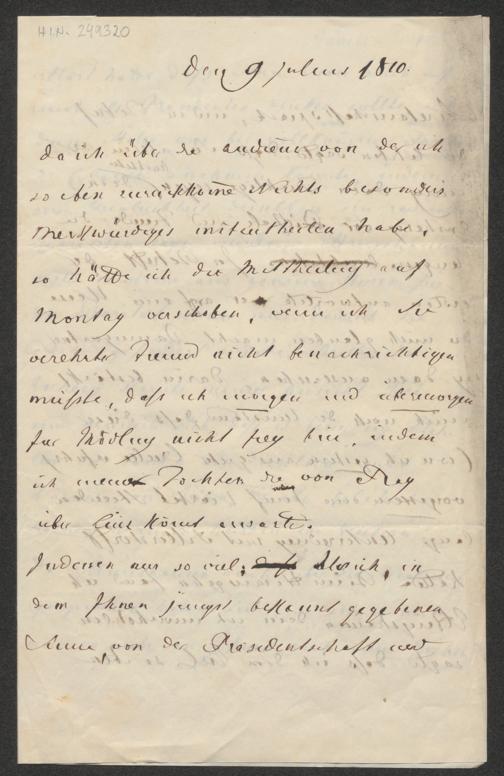 H.I.N. 249320
Den 9 Julius 18 0.
da ich über die audienz von der ich
so eben zurückkome Nichts besonders
Merkwürdiges mitentheilen habe,
so hätte ich die Mittheilung auf
Montag verschoben, wenn ich Sie
verehrter Freund nicht benachrichtigen
müßte, daß ich morgen und übermorgen
für Mödling nicht frey bin, indem
ich meine Tochter die von
über Linz komt erwarte.
Indessen nur so viel, daß ich, in
dem Ihnen jüngst bekannt gegebenen
Sinne, von der Präsidentschaft und